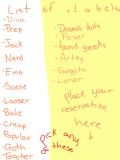 List of Labels
Diva
Prep
Jock
Nerd
Emo
Scene
Looser
Babe
Creep
Popular
Goth
Teacher
Drama kids
Poser
band geeks
Artsy
Gangsta
Loner
Place your
reservation
here
Pick any
of these